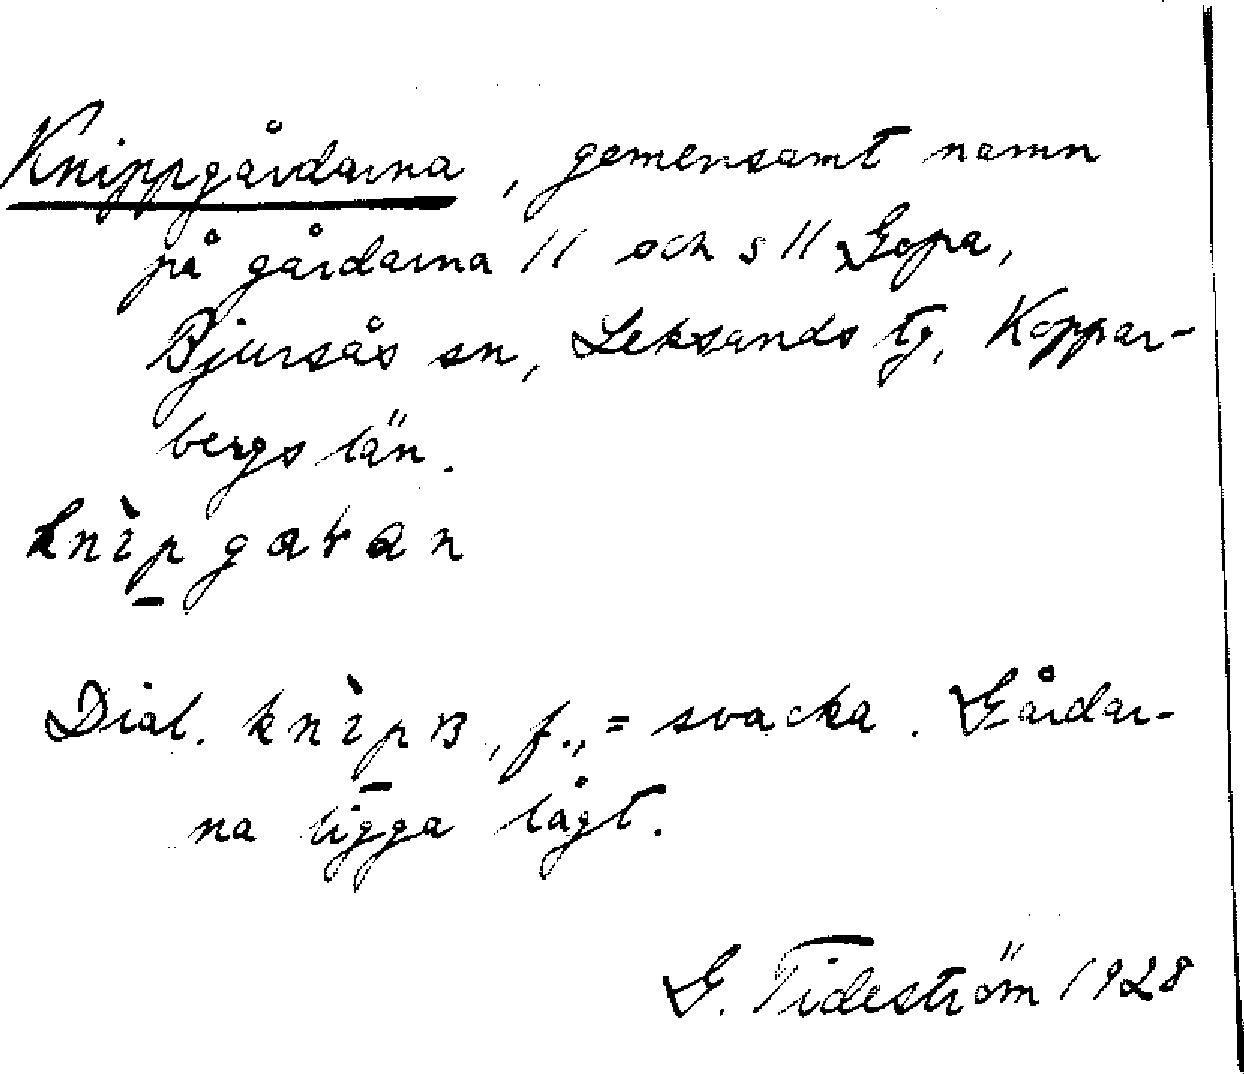 Knippgårdarna, gemensamt namn
på gårdarna 11 och s 11 Gopa,
Bjursås sn, Leksands tg, Koppar-
bergs län.
knìpgaran
Dial. knìpɞ, f., = svacka. Gårdar-
na ligga lågt.
G. Tideström 1928